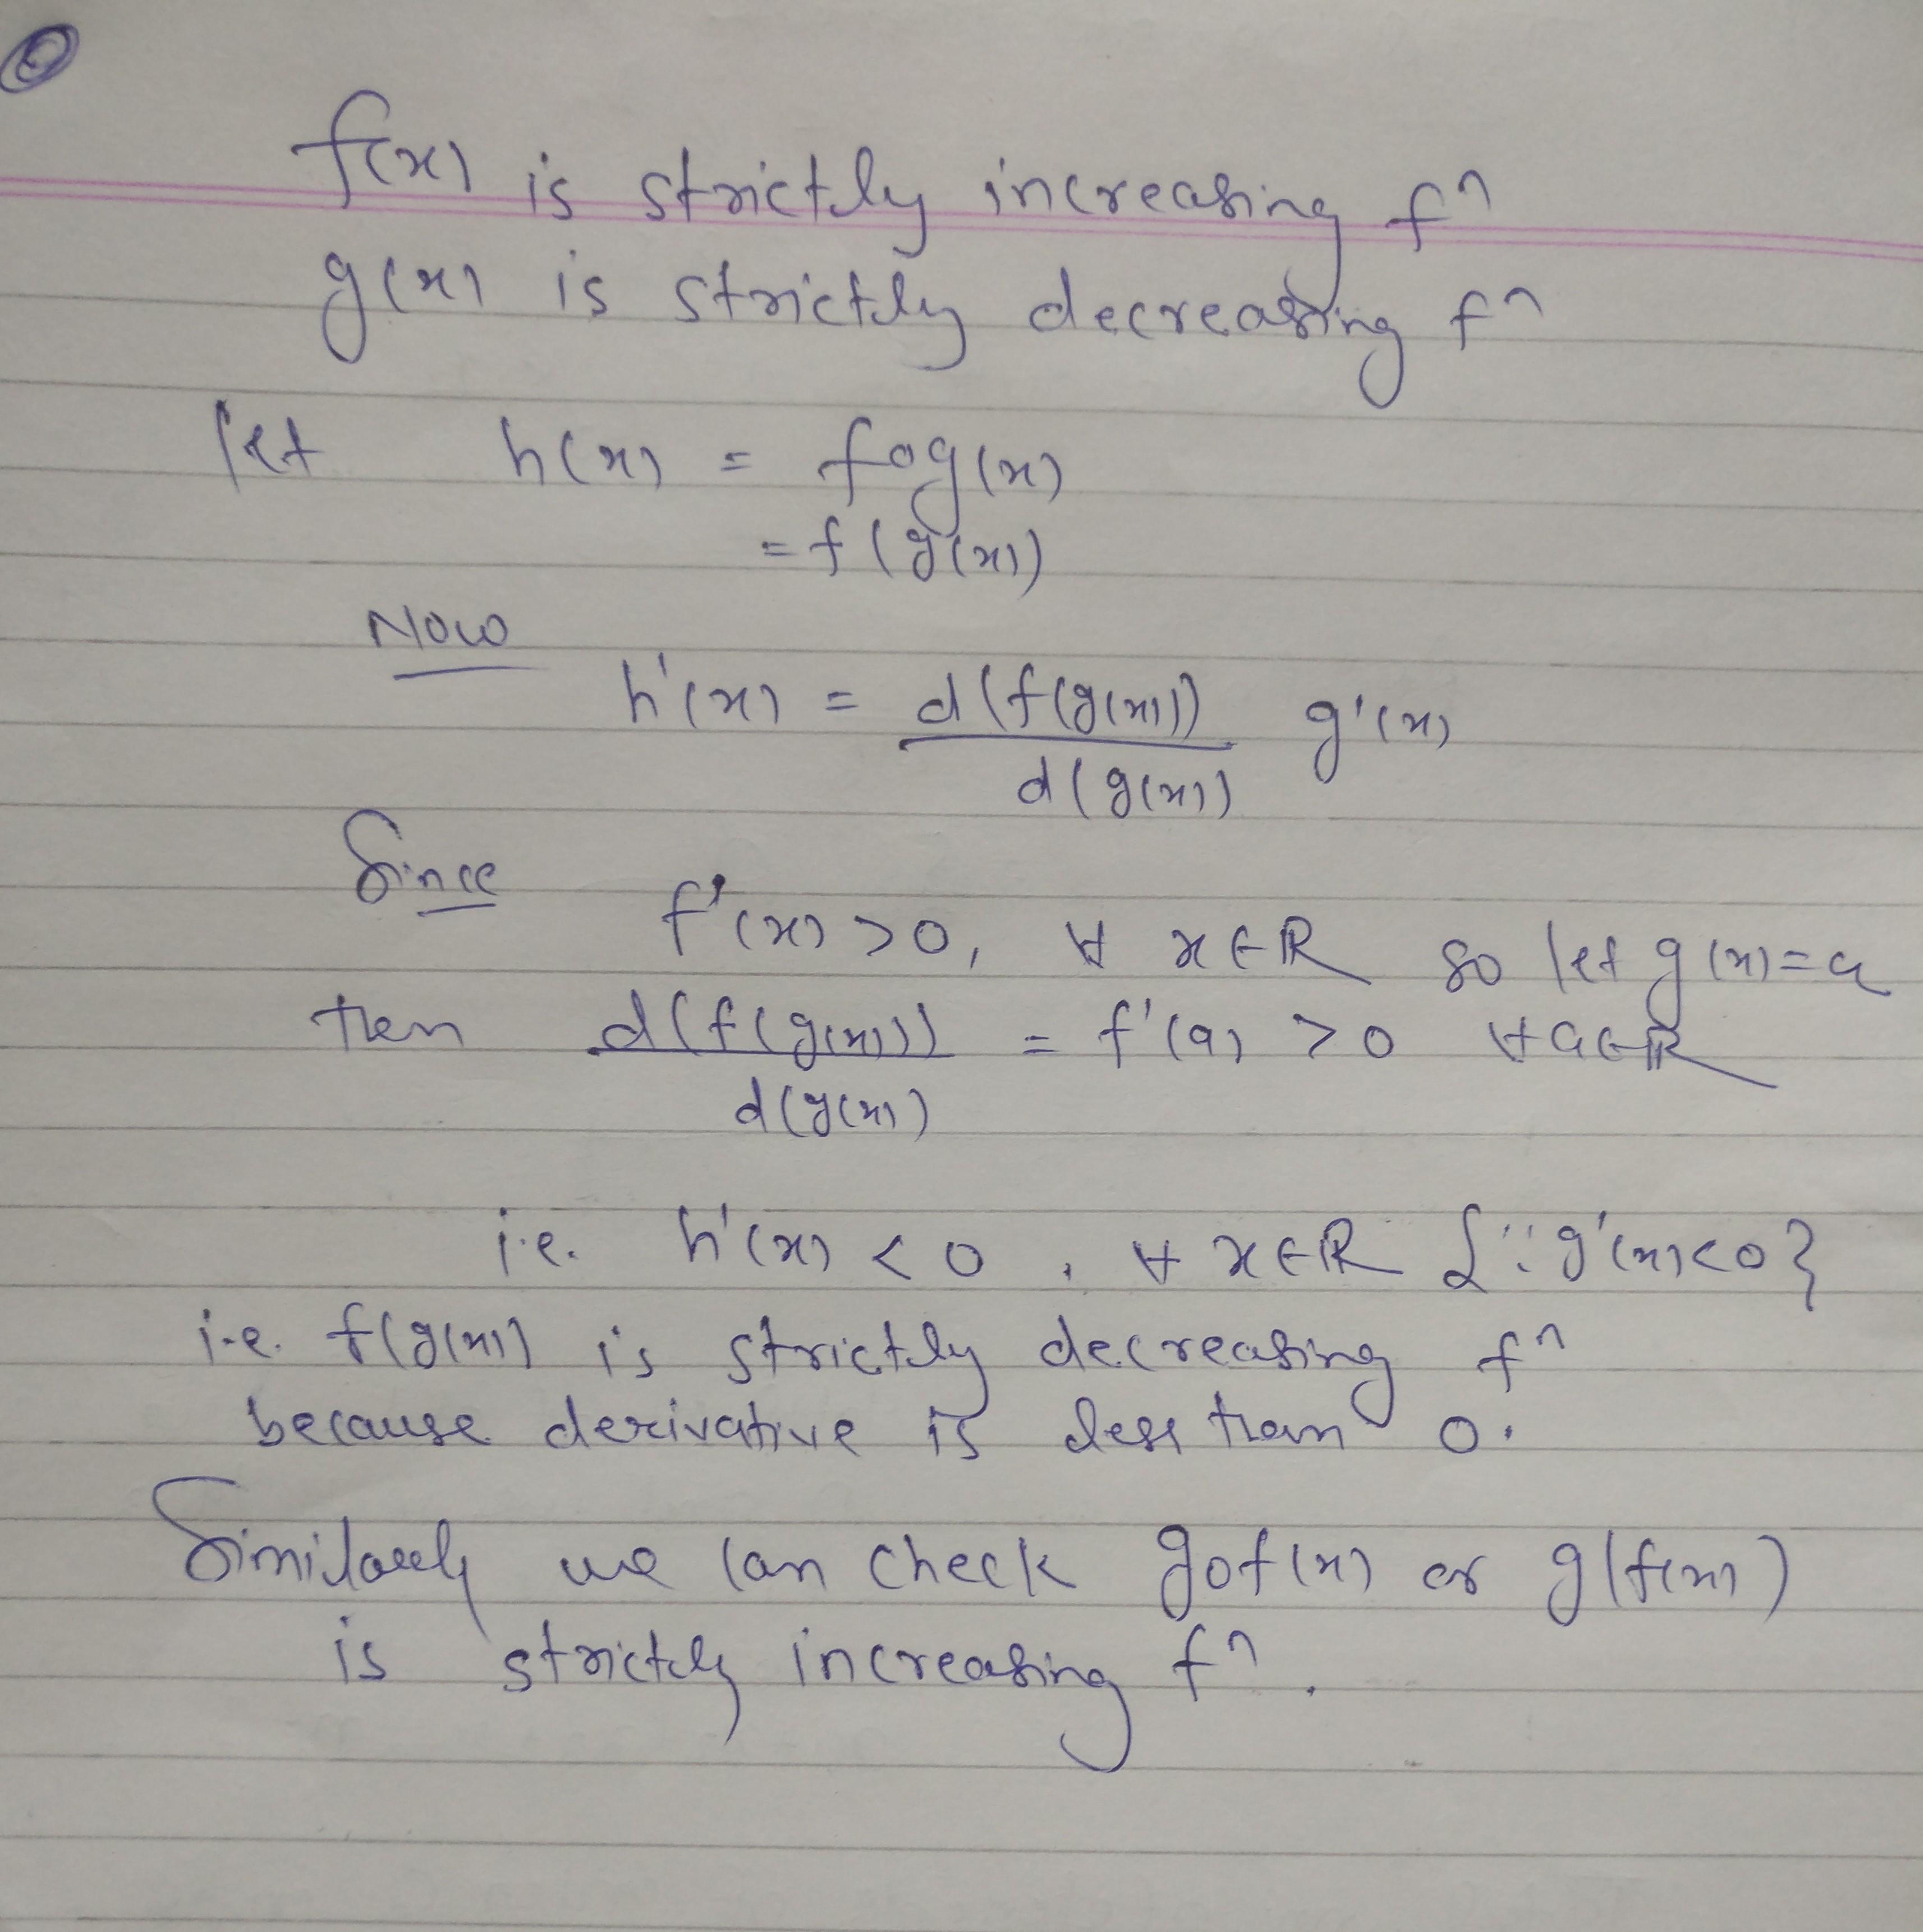 f(x) is strictly increasing fⁿ
g(x) is strictly decreasing fⁿ
let h(x) = fog(x)
= f(g(x))
Now
h'(x) = d(f(g(x))) / d(g(x)) g'(x)
Since f'(x) > 0, ∀ x∈R so let g(x) = a
then d(f(g(x))) / d(g(x)) = f'(a) > 0 ∀ a∈R
i.e. h'(x) < 0 , ∀ x∈R {∵ g'(x) < 0}
i.e. f(g(x)) is strictly decreasing fⁿ
because derivative is less than 0.
Similarly we can check gof(x) or g(f(x))
is strictly increasing fⁿ.